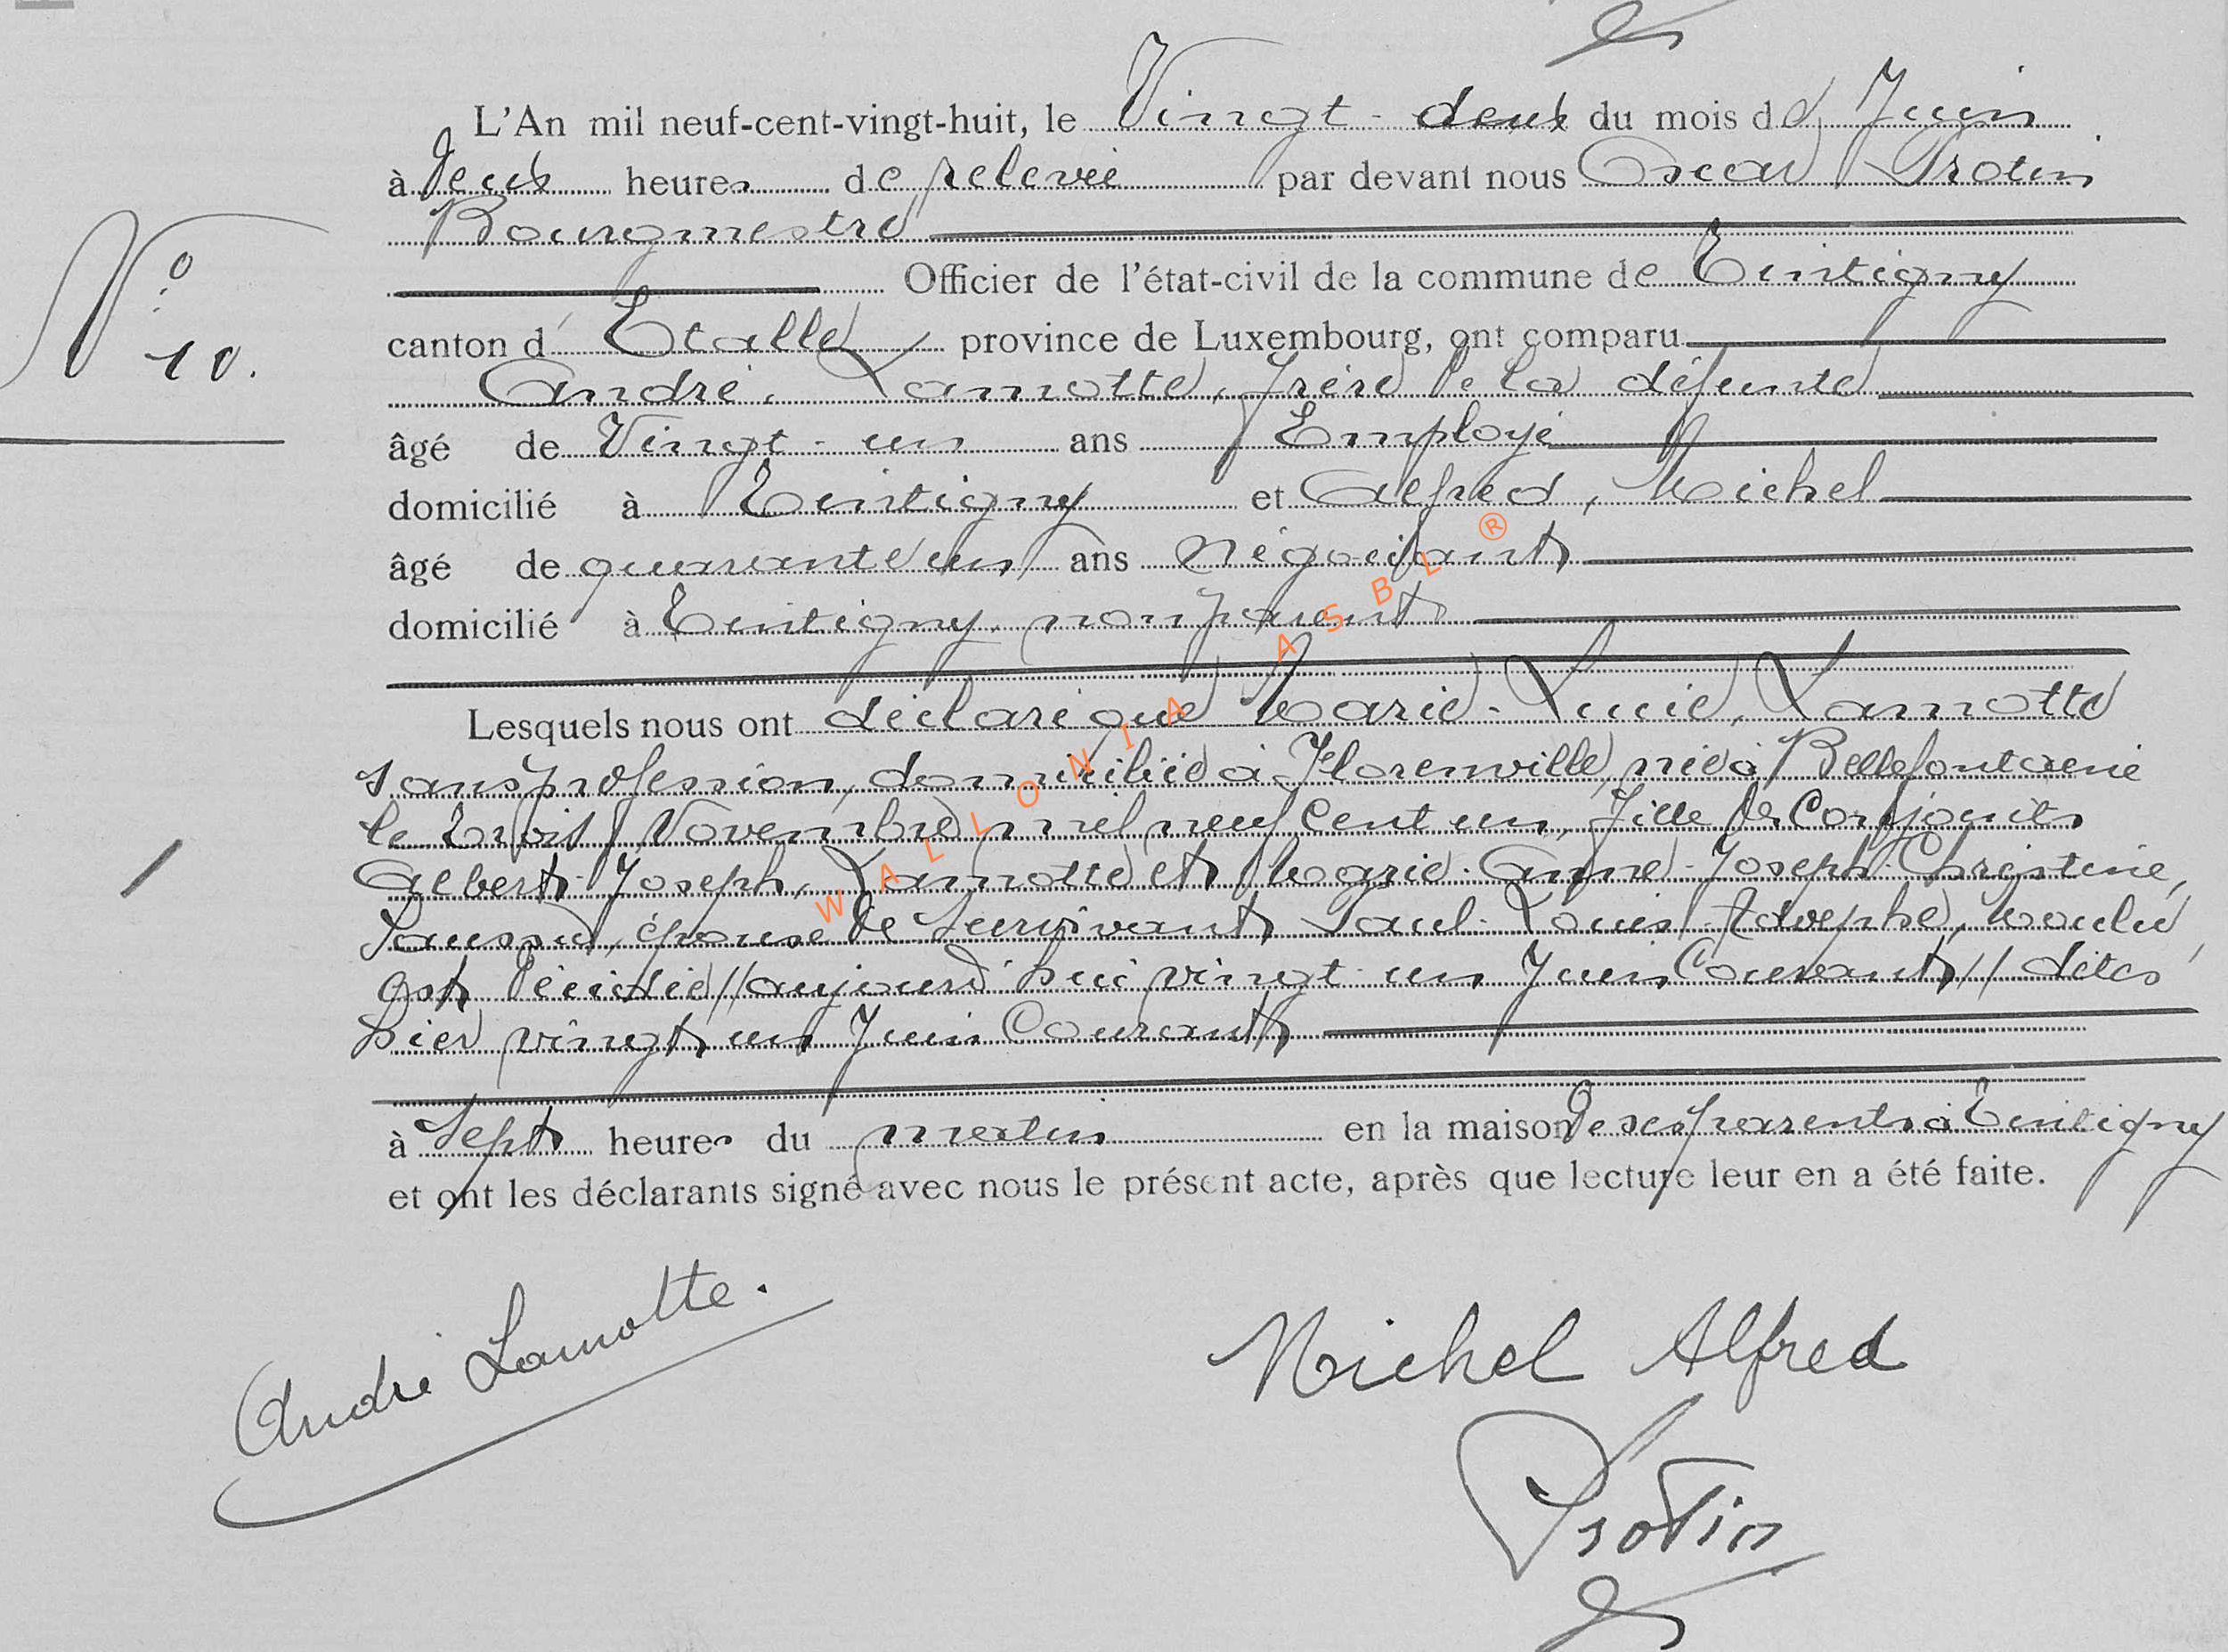 L'An mil neuf-cent-vingt-huit, le Vingt-deux du mois de Juin
à Deux heures de relevée par devant nous Oscar Protin
Bourgmestre
N° 10.
Officier de l'état-civil de la commune de Tintigny
canton d'Etalle province de Luxembourg, ont comparu
André, Lamotte, frère de la défunte
âgé de Vingt-un ans Employé
domicilié à Tintigny et Alfred, Michel
âgé de quarante un ans Négociant
domicilié à Tintigny, non parent
Lesquels nous ont déclaré que Marie-Lucie, Lamotte
sans profession, domiciliée à Florenville, née à Bellefontaine
le trois Novembre mil neuf Cent un, fille des Conjoints
Albert-Joseph, Lamotte et Marie-Anne-Joseph-Christine,
épouse de survivant Paul-Louis-Adolphe,
est décédée//aujourd'hui vingt-un Juin Courant// dites
hier vingt un Juin Courant
à Sept heures du matin en la maison de ses parents à Tintigny
et ont les déclarants signé avec nous le présent acte, après que lecture leur en a été faite.
André Lamotte.
Michel Alfred
Protin
WALLONIA ASBL ®